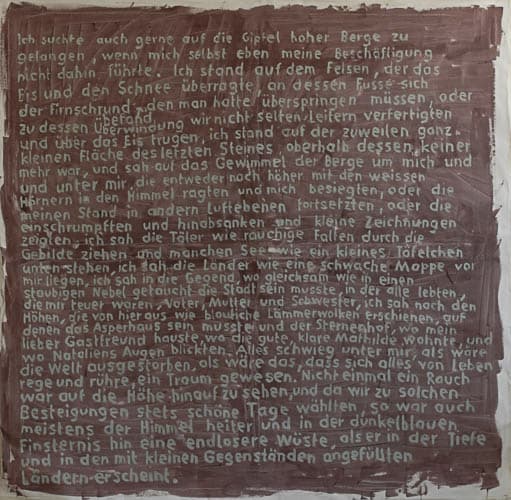 Ich suchte auch gerne auf die Gipfel hoher Berge zu
gelangen, wenn mich selbst eben meine Beschäftigung
nicht dahin führte. Ich stand auf dem Felsen, der das
Eis und den Schnee überragte, an dessen Fusse sich
der Firnschrund befand, den man hatte überspringen müssen, oder
zu dessen Überwindung wir nicht selten Leitern verfertigten
und über das Eis trugen, ich stand auf der zuweilen ganz
kleinen Fläche des letzten Steines, oberhalb dessen keiner
mehr war, und sah auf das Gewimmel der Berge um mich und
und unter mir, die entweder noch höher mit den weissen
Hörnern in den Himmel ragten und mich besiegten, oder die
meinen Stand in andern Luftebenen fortsetzten, oder die
einschrumpften und hinabsanken und kleine Zeichnungen
zeigten, ich sah die Täler wie rauchige Falten durch die
Gebilde ziehen und manchen See wie ein kleines Täfelchen
unten stehen, ich sah die Länder wie eine schwache Mappe vor
mir liegen, ich sah in die Gegend, wo gleichsam wie in einen
staubigen Nebel getaucht die Stadt sein musste, in der alle lebten,
die mir teuer waren, Vater, Mutter und Schwester, ich sah nach den
Höhen, die von hier aus wie blauliche Lämmerwolken erschienen, auf
denen das Asperhaus sein musste und der Sternenhof, wo mein
lieber Gastfreund hauste, wo die gute, klare Mathilde wohnte, und
wo Nataliens Augen blickten. Alles schwieg unter mir, als wäre
die Welt ausgestorben, als wäre das, dass sich alles von Leben
rege und rühre, ein Traum gewesen. Nicht einmal ein Rauch
war auf die Höhe hinauf zu sehen, und da wir zu solchen
Besteigungen stets schöne Tage wählten, so war auch
meistens der Himmel heiter und in der dunkelblauen
Finsternis hin eine endlosere Wüste, als er in der Tiefe
und in den mit kleinen Gegenständen angefüllten
Ländern erscheint.